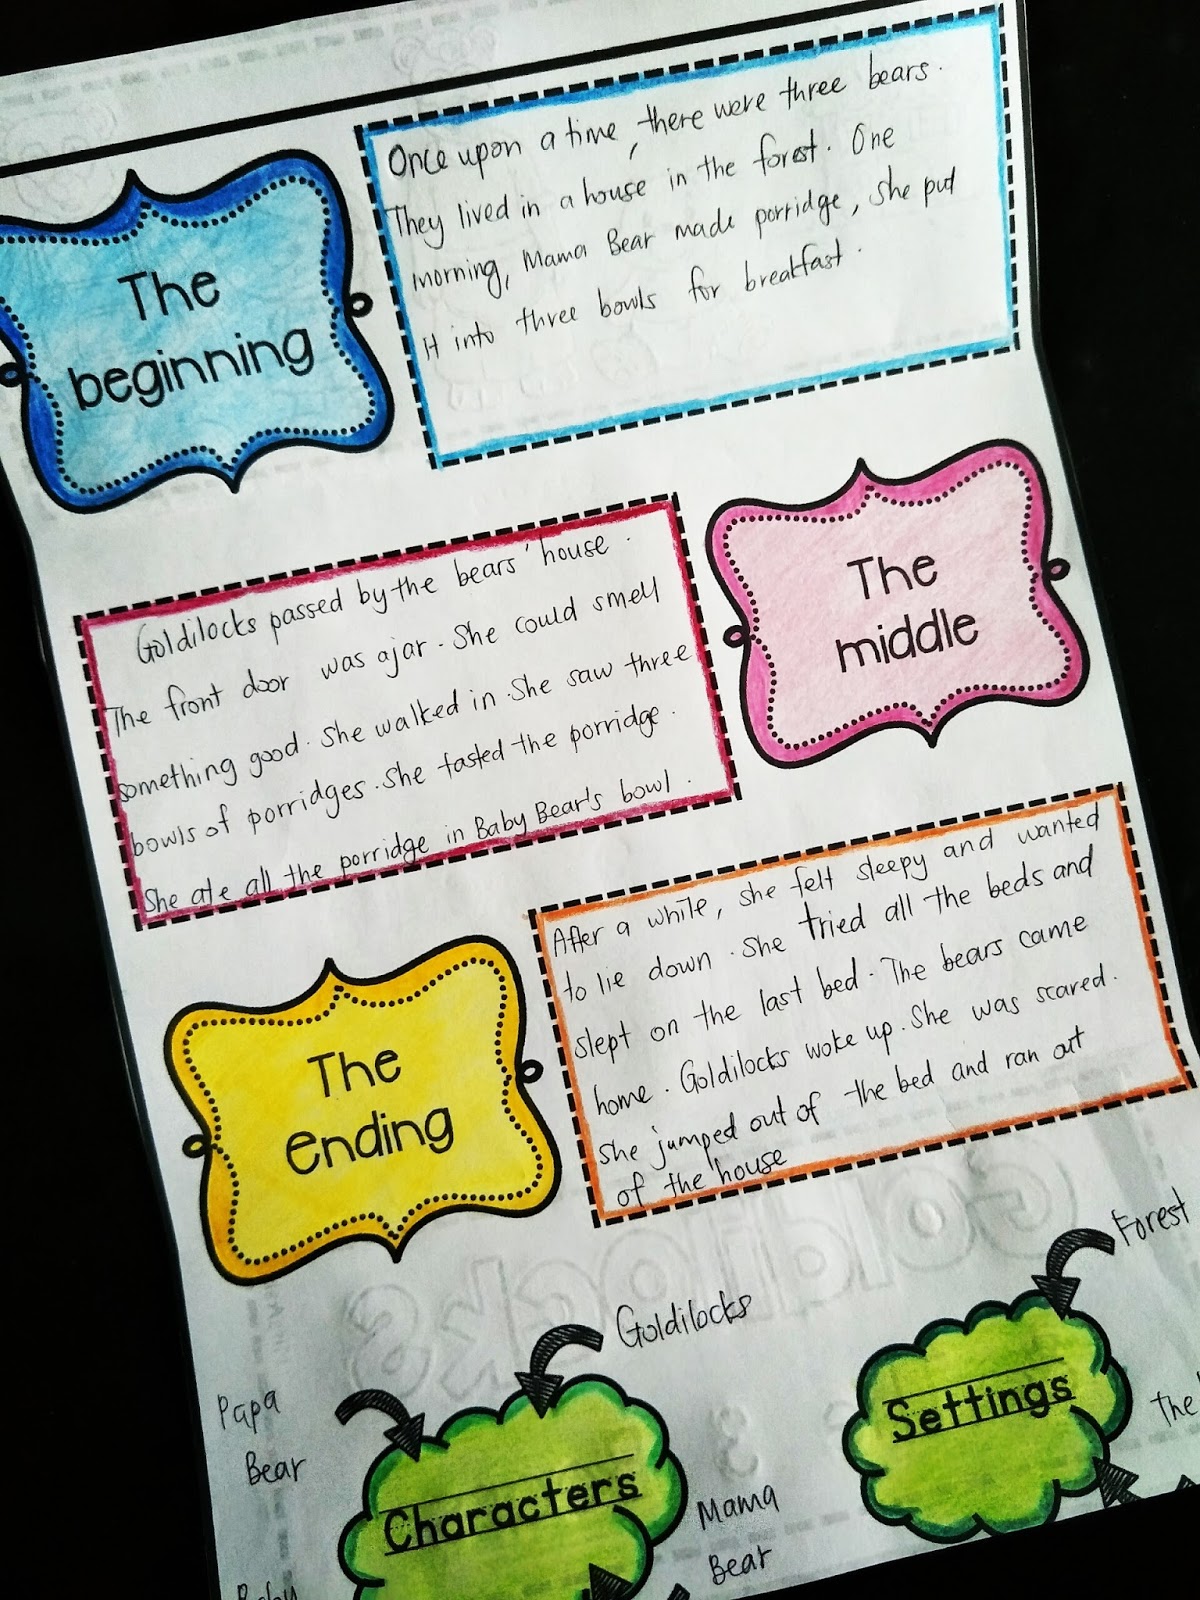 The
beginning
Once upon a time, there were three bears.
They lived in a house in the forest. One
morning, Mama Bear made porridge, she put
it into three bowls for breakfast.
Goldilocks passed by the bears' house.
The front door was ajar. She could smell
something good. She walked in. She saw three
bowls of porridges. She tasted the porridge.
She ate all the porridge in Baby Bear's bowl.
The
middle
The
ending
After a while, she felt sleepy and wanted
to lie down. She tried all the beds and
slept on the last bed. The bears came
home. Goldilocks woke up. She was scared.
She jumped out of the bed and ran out
of the house
Forest
Settings
The
Goldilocks
Papa
Bear
Characters
Mama
Bear
Baby